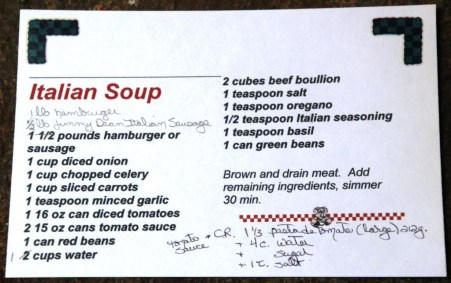 Italian Soup
1 lb hamburger
1/2 lb Jimmy Dean Italian Sausage
1 1/2 pounds hamburger or
sausage
1 cup diced onion
1 cup chopped celery
1 cup sliced carrots
1 teaspoon minced garlic
1 16 oz can diced tomatoes
2 15 oz cans tomato sauce
1 can red beans
2 cups water
2 cubes beef boullion
1 teaspoon salt
1 teaspoon oregano
1/2 teaspoon Italian seasoning
1 teaspoon basil
1 can green beans
Brown and drain meat. Add
remaining ingredients, simmer
30 min.
tomato
sauce
C.R. 1 1/3 pasta de tomate (large) 212g.
+ 4 c. water
+ sugar
+ 1 t. salt